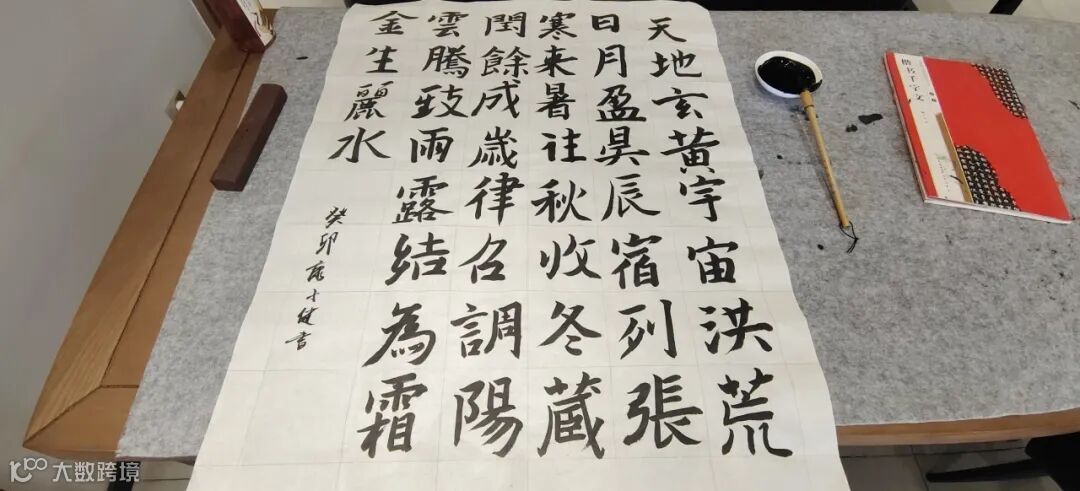 天地玄黄宇宙洪荒
日月盈昃辰宿列張
寒来暑往秋收冬蔵
閏餘成歲律召調陽
雲騰致雨露結為霜
金生麗水
癸卯 书
楷书千字文
大数跨境